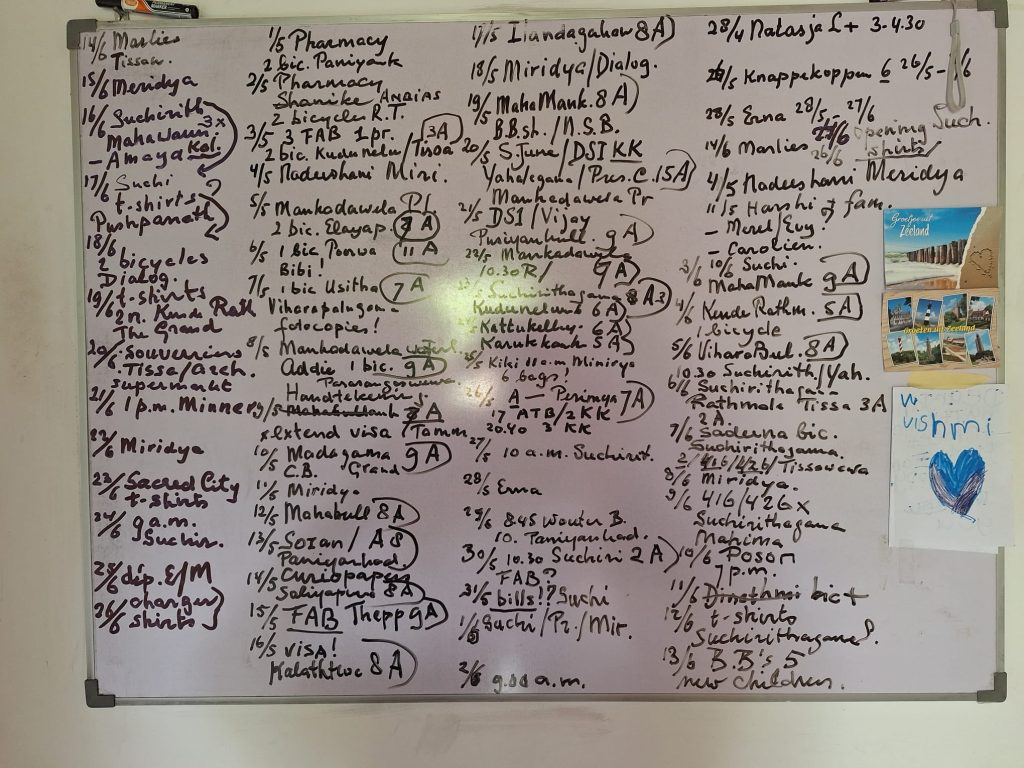 14/6 Marlies
Tissa
15/6 Meridya
16/6 Suchirith
3x
- Amaya Kol.
17/6 Suchi
t-shirts?
18/6
2 bicycles
Dialog.
19/6 t-shirts
2n. Kunde Rath
The Grand
20/6 souvenirs
Tissa/arch.
supermarkt
21/6 1 p.m. Minnery
22/6 Miridya
23/6 Sacred City
t-shirts
24/6 9 a.m.
Suchir.
25/6 dep. E/M
26/6 shirts
1/5 Pharmacy
2 bic. Paniyank
2/5 Pharmacy
Shanike
2 bicycles R.T.
3/5 3 FAB 1 pr. 3A
2 bic. Kudunelu/Tissa
4/5 Nadeeshani Miri.
5/5 Mankodawela Pr.
2 bic. Elayap.
6/5 1 bic Poorwa 11 A
Bibi!
7/5 1 bic Usitha 7 A
fotocopies!
8/5 Mankodawela
Addie 1 bic. 9 A
9/5
x extend visa
10/5 Madagama 9 A
C.B. Grand
11/5 Miridya
12/5 Mahabull 8 A
13/5 A8
14/5
8 A
15/5 FAB Thepp 9 A
16/5 visa!
8 A
17/5 Ilandagahaw 8 A
18/5 Miridya/Dialog.
19/5 MahaMank. 8 A
B.B.sh. / N.S.B.
20/5 S.June/DSI KK
Pres. C. 15 A
Mankadawela Pr
21/5 DSI/Vijay
9 A
22/5 Mankadawela
10.30 R/ 9 A
Suchirithagama 8 A3
Kudunelum 6 A
Kattukelliy. 6 A
5 A
Kiki 11 a.m. Miniriya
6 bags!
A - Perimya 7 A
17 ATB/2 KK
20.40 3 KK
27/5 10 a.m. Suchirit.
28/5 Erna
29/5 8.45 Wouter B.
10. Paniyankad.
30/5 10.30 Suchiri 2 A
FAB?
31/5 bills!? Suchi
1/6 Suchi/Pr./Mir.
2/6 9.00 a.m.
28/4 Natasja L + 3-4.30
Knappekoppen 6 26/5-
28/5 Erna 28/5 - 27/6
14/6 Marlies 27/6 opening Such.
26/6 shirts
4/5 Nadeeshani Meridya
11/5 Harshi & fam.
- Merel/Evy
- Carolien.
10/6 Suchi.
3/6 MahaMank 9 A
4/6 Kunde Rathm. 5 A
1 bicycle
5/6 ViharaBul. 8 A
10.30 Suchirith/Yah.
6/6 Suchirithagama
Rathmale Tissa 3A
2 A.
7/6 bic.
Suchirithagama.
416/426/Tissawewa
8/6 Miridya.
9/6 416/426 x
Suchirithagama
Mahima
10/6 Poson
7 p.m.
11/6 Dinethmi bic +
12/6 t-shirts
Suchirithagama?
13/6 B.B's 5
new children.
Groetjes uit
Zeeland
Groeten uit Zeeland
vishmi